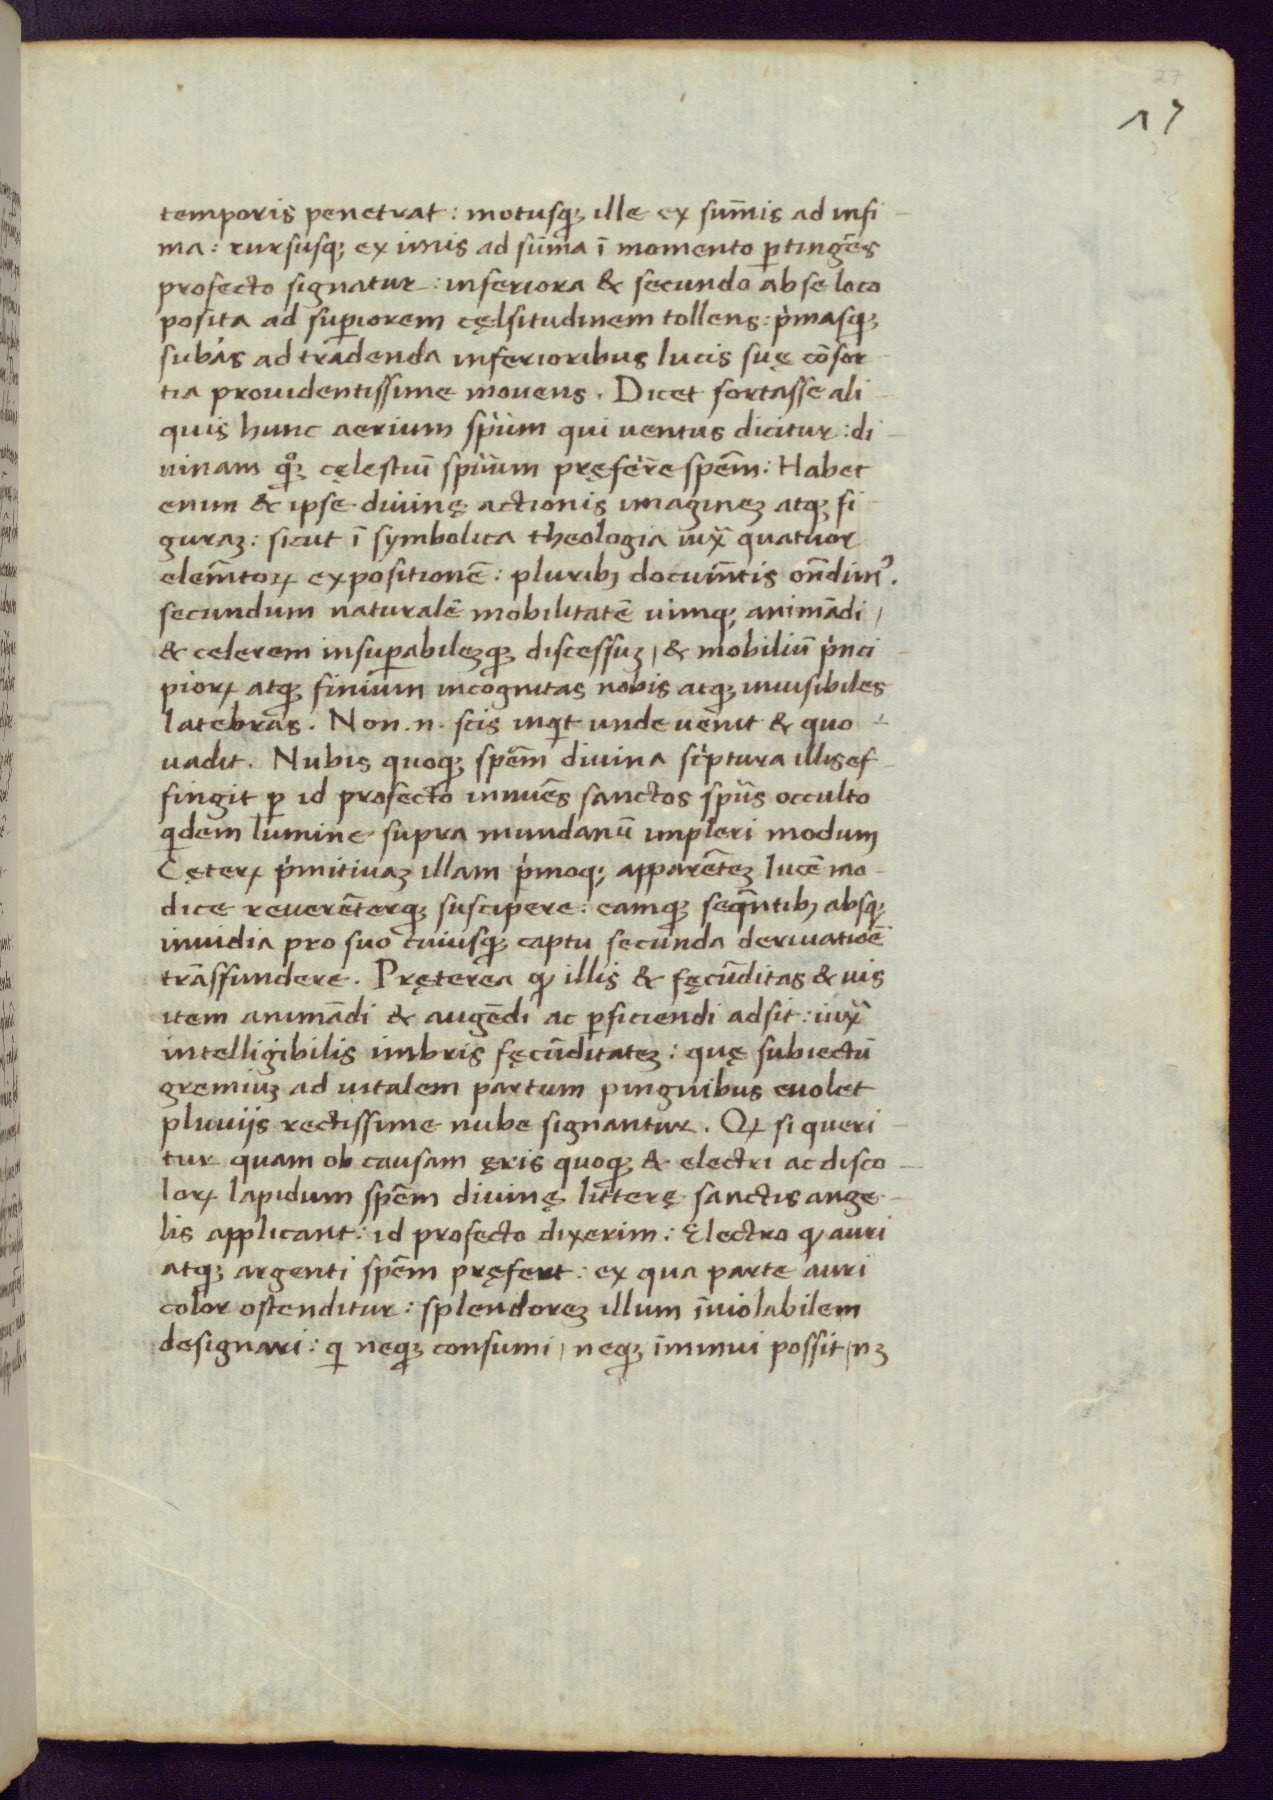 27
17
temporis penetrat: motusqꝫ ille ex sum̄is ad infi-
ma: rursusqꝫ ex imis ad sūma ī momento ꝑtingēs
profecto signatur: inferiora & secundo ab se loco
posita ad suꝑiorem cęlsitudinem tollens: pͥmasqꝫ
subās ad tradenda inferioribus lucis suę cōsor-
tia prouidentissime mouens. Dicet fortasse ali-
quis hunc aerium spūm qui uentus dicitur: di-
uinam qͦꝫ cęlestiū spūum pręferre spēm: Habet
enim & ipse diuinę actionis imagineꝫ atqꝫ fi-
guraꝫ: sicut ī symbolica theologia iuxͣ quatuor
elemētoꝝ expositionē: pluribꝫ documētis ondimꝰ.
secundum naturalē mobilitatē uimqꝫ animādi /
& celerem insuꝑabileꝫqꝫ discessuꝫ / & mobiliū pͥnci-
pioꝝ atqꝫ finium incognitas nobis atqꝫ inuisibiles
latebras. Non .n. scis inqͥt unde uenit & quo
uadit. Nubis quoqꝫ spēm diuina scͥptura illis ef-
fingit ꝑ id profecto innuēs sanctos spūs occulto
qͥdem lumine supra mundanū impleri modum
Cęteꝝ pͥmitiuaꝫ illam pͥmoqꝫ apparēteꝫ lucē mo-
dice reuerēterqꝫ suscipere: eamqꝫ seqn̄tibꝫ absqꝫ
inuidia pro suo cuiusqꝫ captu secunda deriuatiōē
trāsfundere. Pręterea ꝙ illis & fęcūditas & uis
item animādi & augēdi ac ꝑficiendi adsit: iuxͣ
intelligibilis imbris fęcūditateꝫ: quę subiectū
gremiuꝫ ad uitalem partum pinguibus euolet
pluuijs rectissime nube signantur. Ꝙ si queri-
tur quam ob causam ęris quoqꝫ & electri ac disco-
loꝝ lapidum spēm diuinę litterę sanctis ange-
lis applicant: id profecto dixerim: Electro ꝙ auri
atqꝫ argenti spēm pręfert: ex qua parte auri
color ostenditur: splendoreꝫ illum īuiolabilem
designari: qͥ neqꝫ consumi / neqꝫ īminui possit / nꝫ